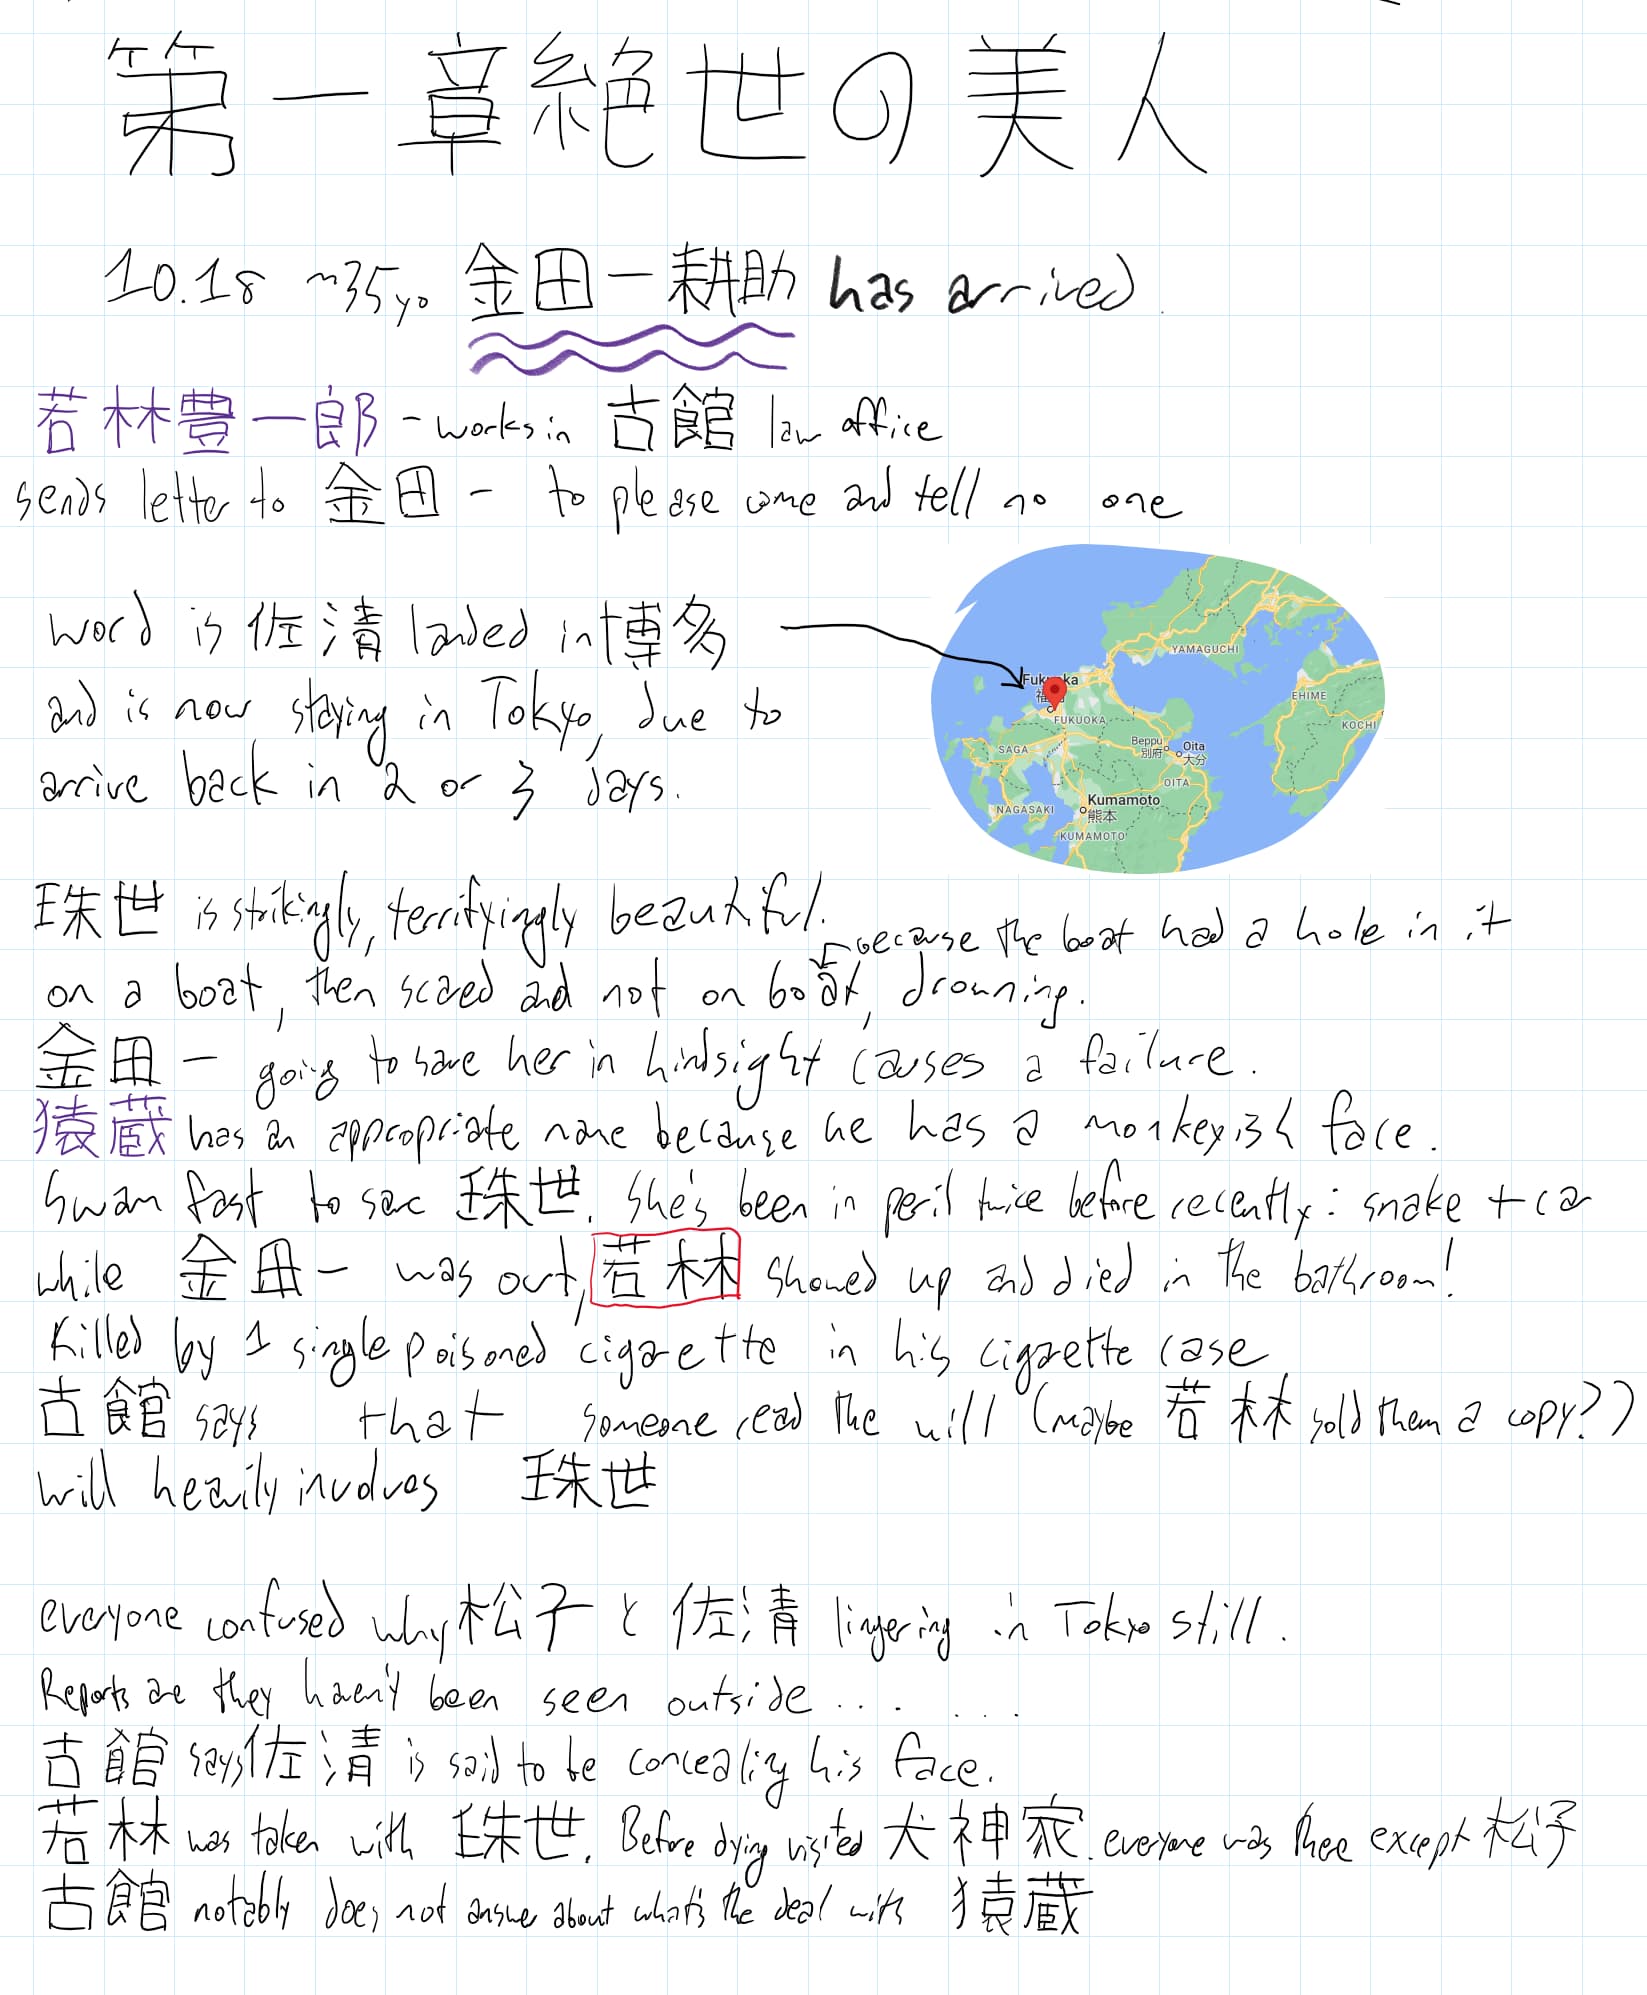 第一章絶世の美人
10.18 ~35yo 金田一耕助 has arrived.
若林豊一郎 - works in 古館 law office
sends letter to 金田一 to please come and tell no one
word is 佐清 landed in 博多
and is now staying in Tokyo, due to
arrive back in 2 or 3 days.
Fukuoka
FUKUOKA
YAMAGUCHI
EHIME
KOCHI
SAGA
Beppu
別府
Oita
大分
OITA
NAGASAKI
Kumamoto
熊本
KUMAMOTO
珠世 is strikingly, terrifyingly beautiful.
because the boat had a hole in it
on a boat, then scared and not on boat, drowning.
金田一 going to save her in hindsight causes a failure.
猿蔵 has an appropriate name because he has a monkeyish face.
Swam fast to sac 珠世. She's been in peril twice before recently: snake + car
while 金田一 was out, 若林 showed up and died in the bathroom!
Killed by 1 single poisoned cigarette in his cigarette case
古館 says that someone read the will (maybe 若林 sold them a copy??)
will heavily involves 珠世
everyone confused why 松子と佐清 lingering in Tokyo still.
Reports are they haven't been seen outside.......
古館 says 佐清 is said to be concealing his face.
若林 was taken with 珠世. Before dying visited 犬神家. everyone was there except 松子
古館 notably does not answer about what's the deal with 猿蔵